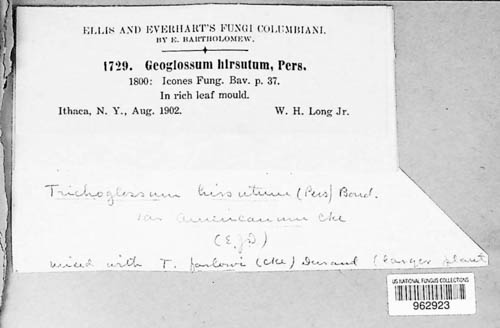 ELLIS AND EVERHART'S FUNGI COLUMBIANI.
BY E. BARTHOLOMEW.
1729. Geoglossum hirsutum, Pers.
1800: Icones Fung. Bav. p. 37.
In rich leaf mould.
Ithaca, N. Y., Aug. 1902. W. H. Long Jr.
Trichoglossum hirsutum (Pers) Boud.
var americanum Cke
(E.J.D)
mixed with T. farlowi (Cke) Durand (larger plant
US NATIONAL FUNGUS COLLECTIONS
962923